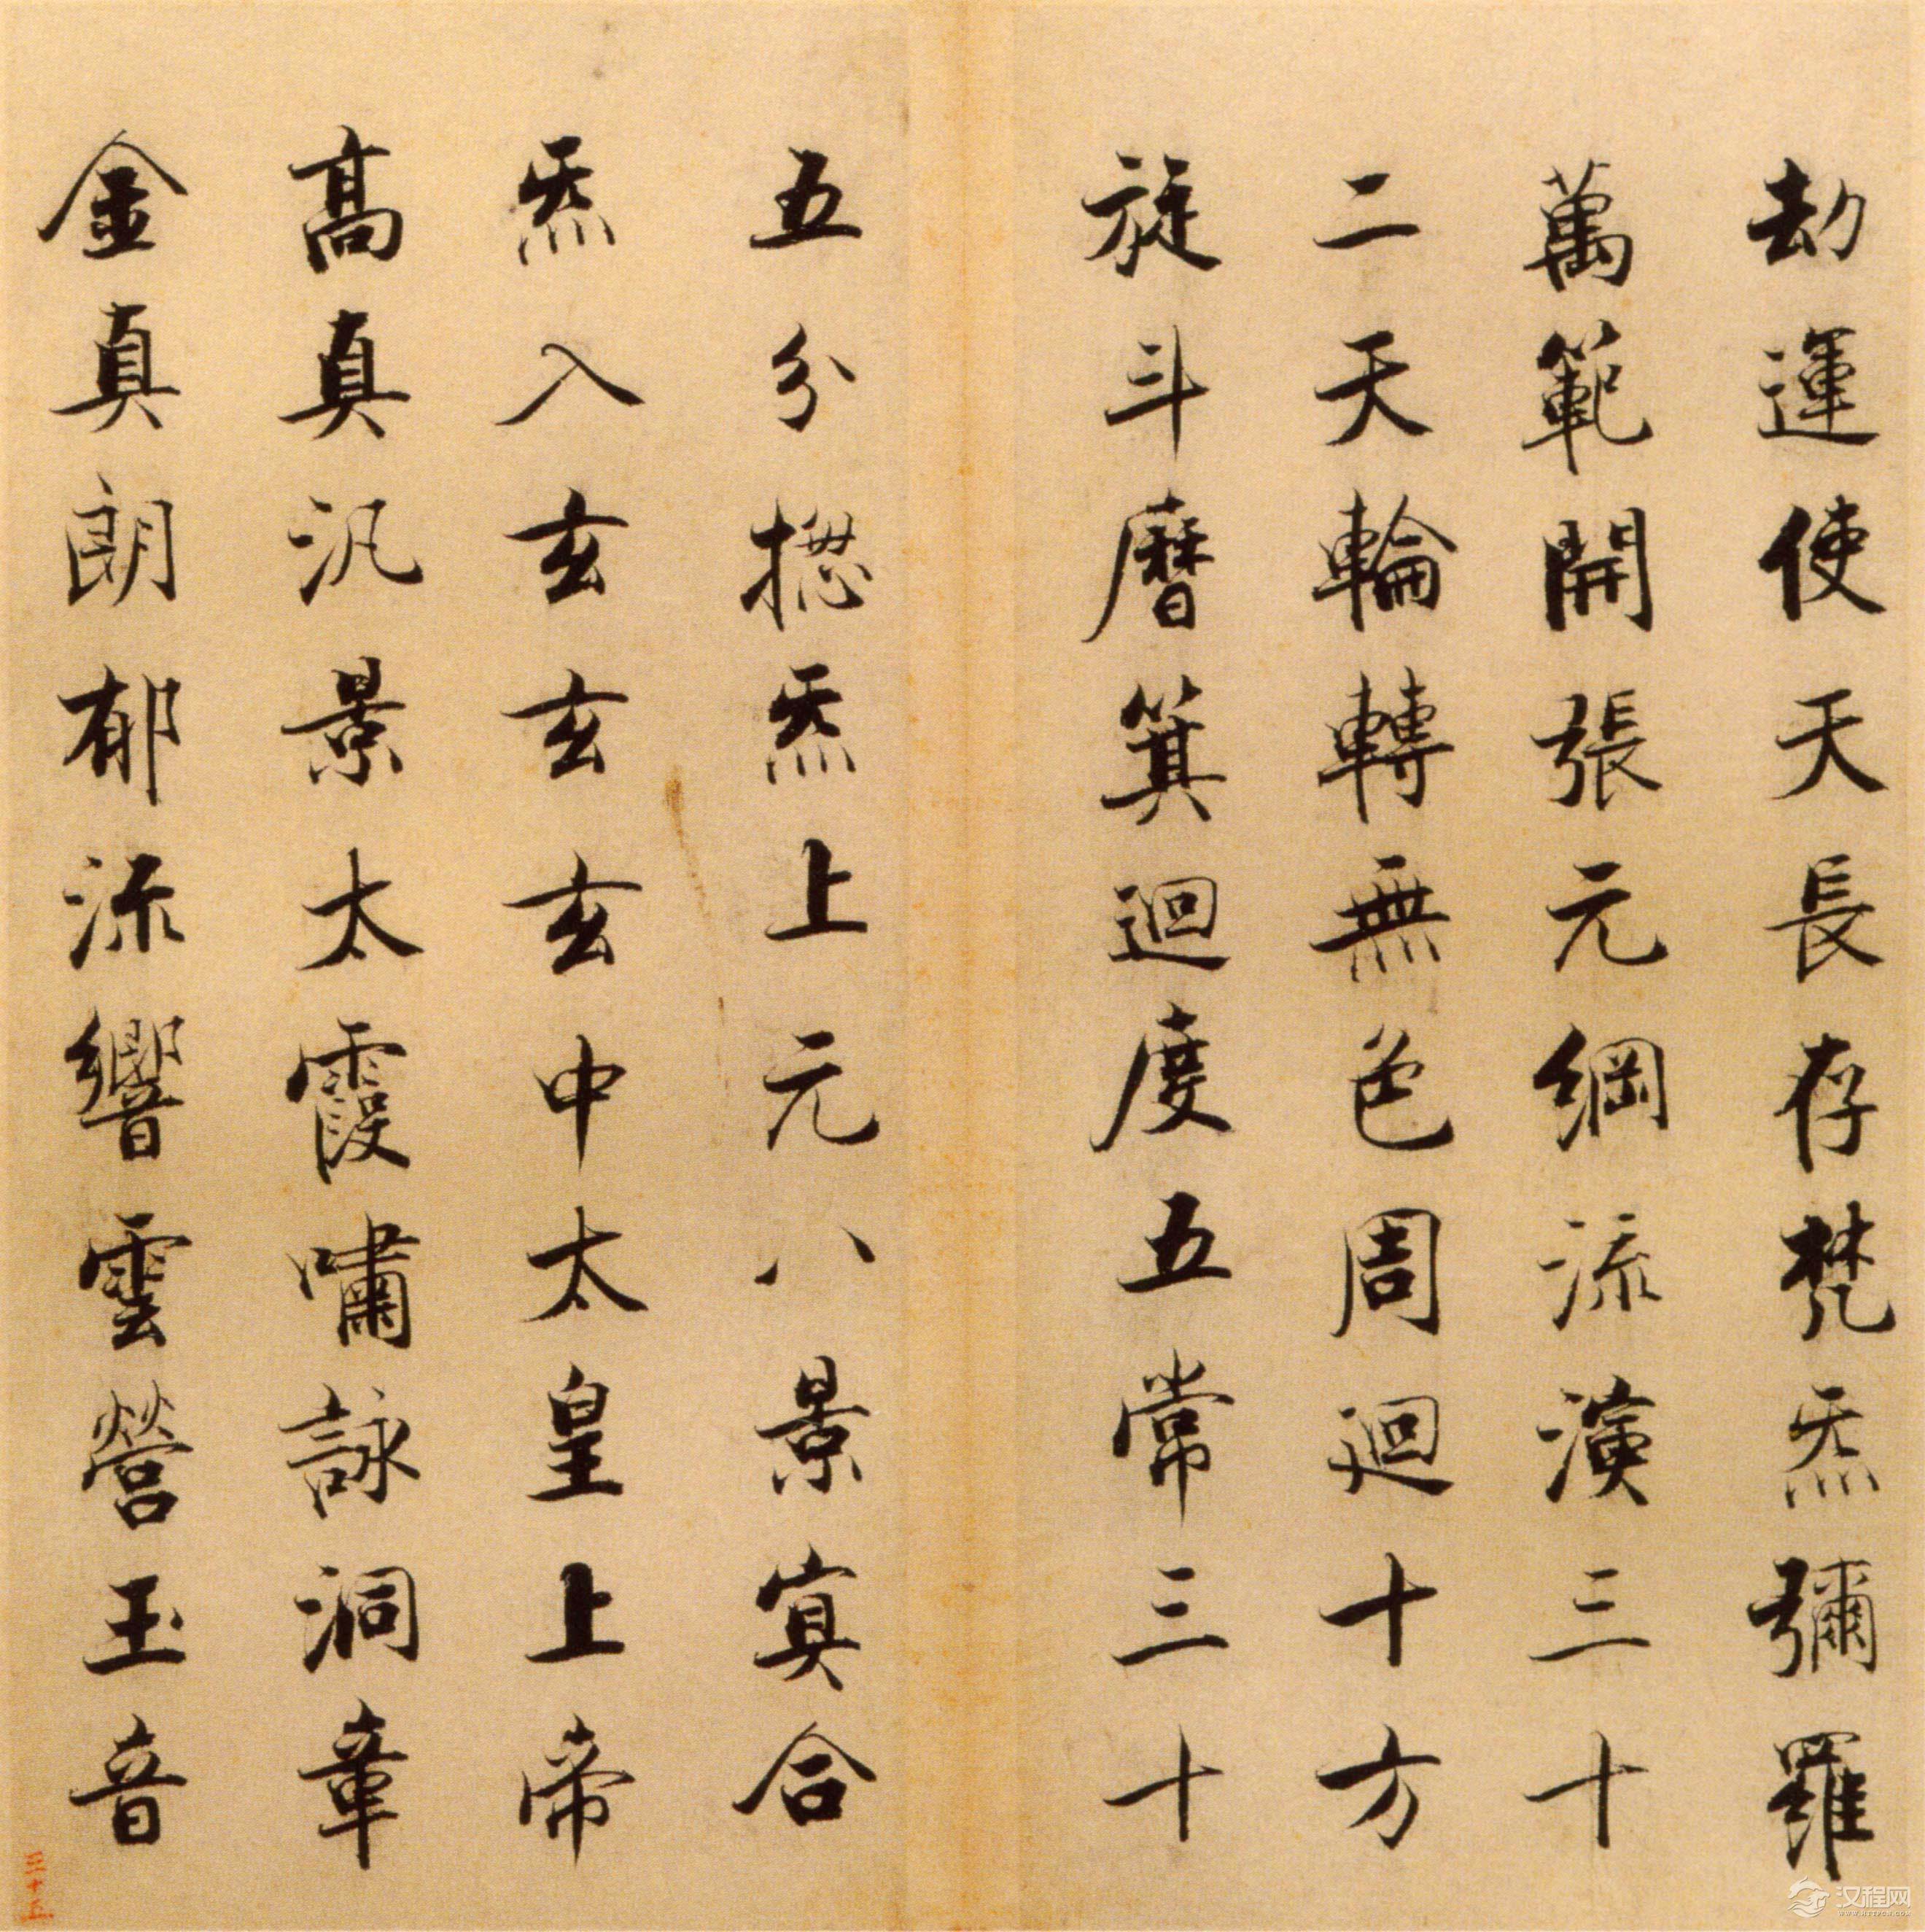 劫運使天長存梵炁彌羅
萬範開張元綱流演三十
二天輪轉無色周迴十方
旋斗曆箕迴度五常三十
五分揔炁上元八景寘合
炁入玄玄玄中太皇上帝
高真汎景太霞嘯詠洞章
金真朗郁流響雲營玉音
三十五
汉程网
WWW.HTTPCN.COM